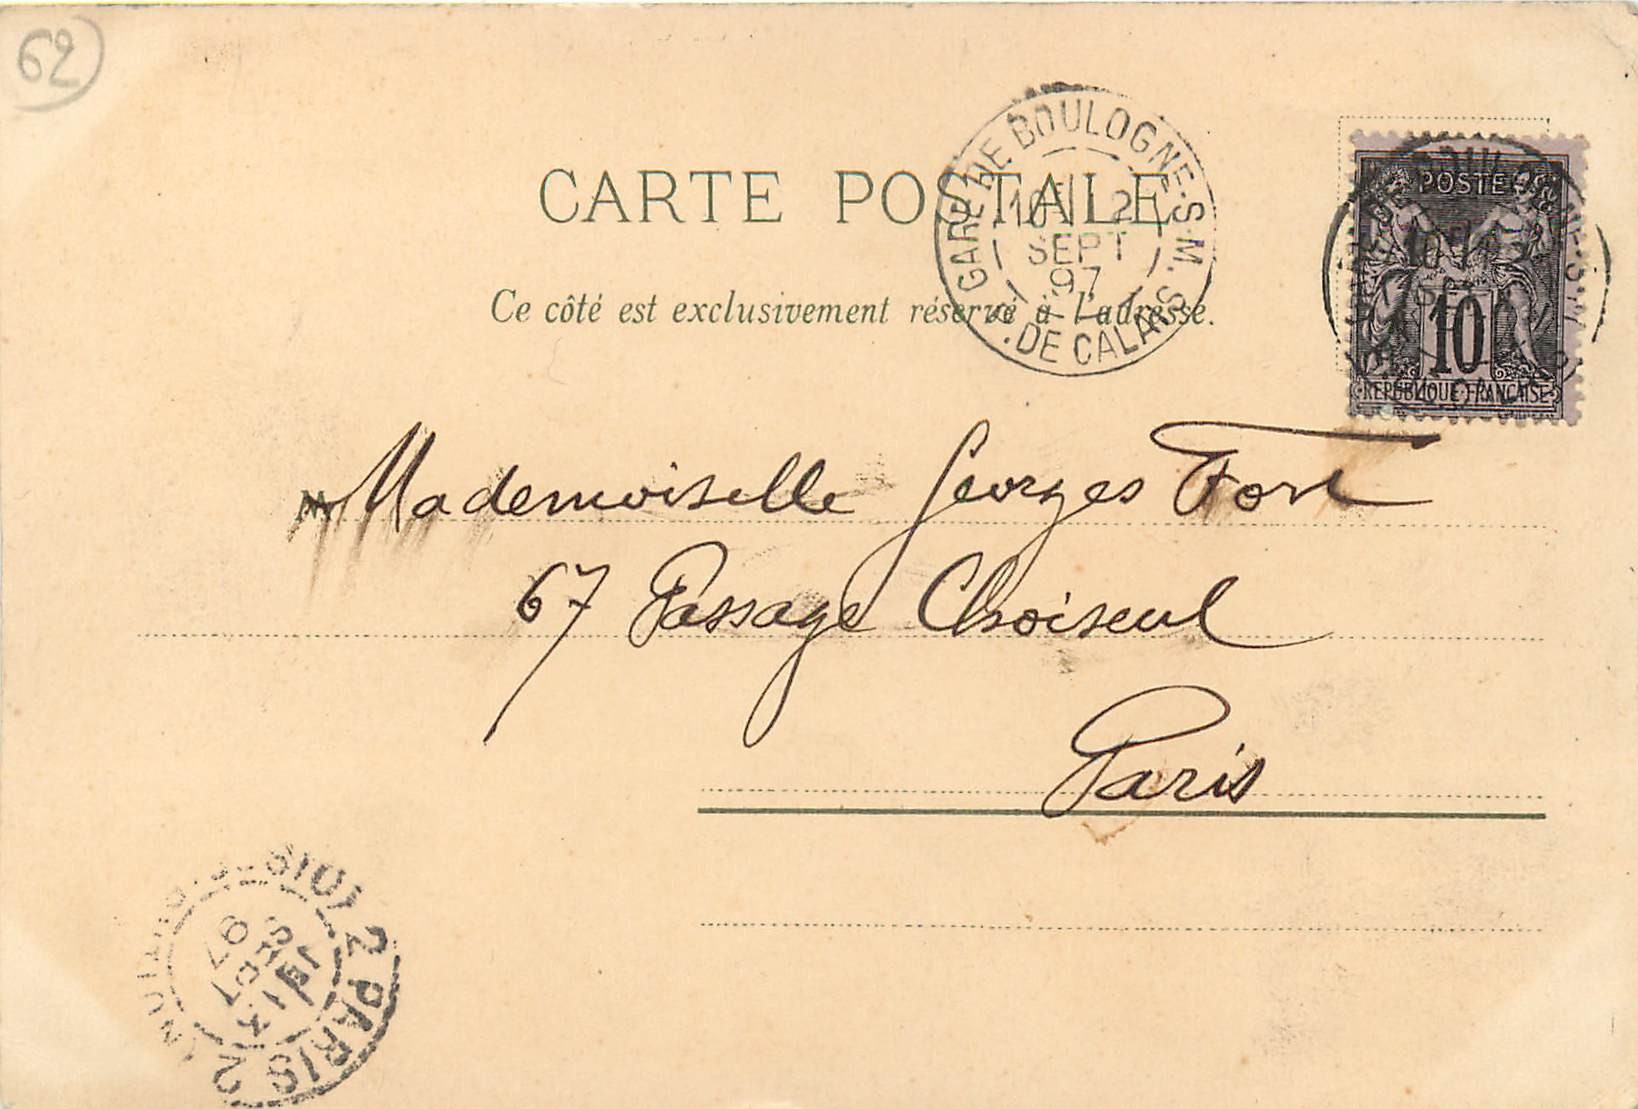 62
CARTE POSTALE
Ce côté est exclusivement réservé à l'adresse.
GARE DE BOULOGNE-S-M.
Pas DE CALAIS
10E 2
SEPT
97
POSTES
10
REPUBLIQUE FRANÇAISE
Mademoiselle Georges Fort
67 Passage Choiseul
Paris
2 PARIS 2
1E 3
SEPT
97